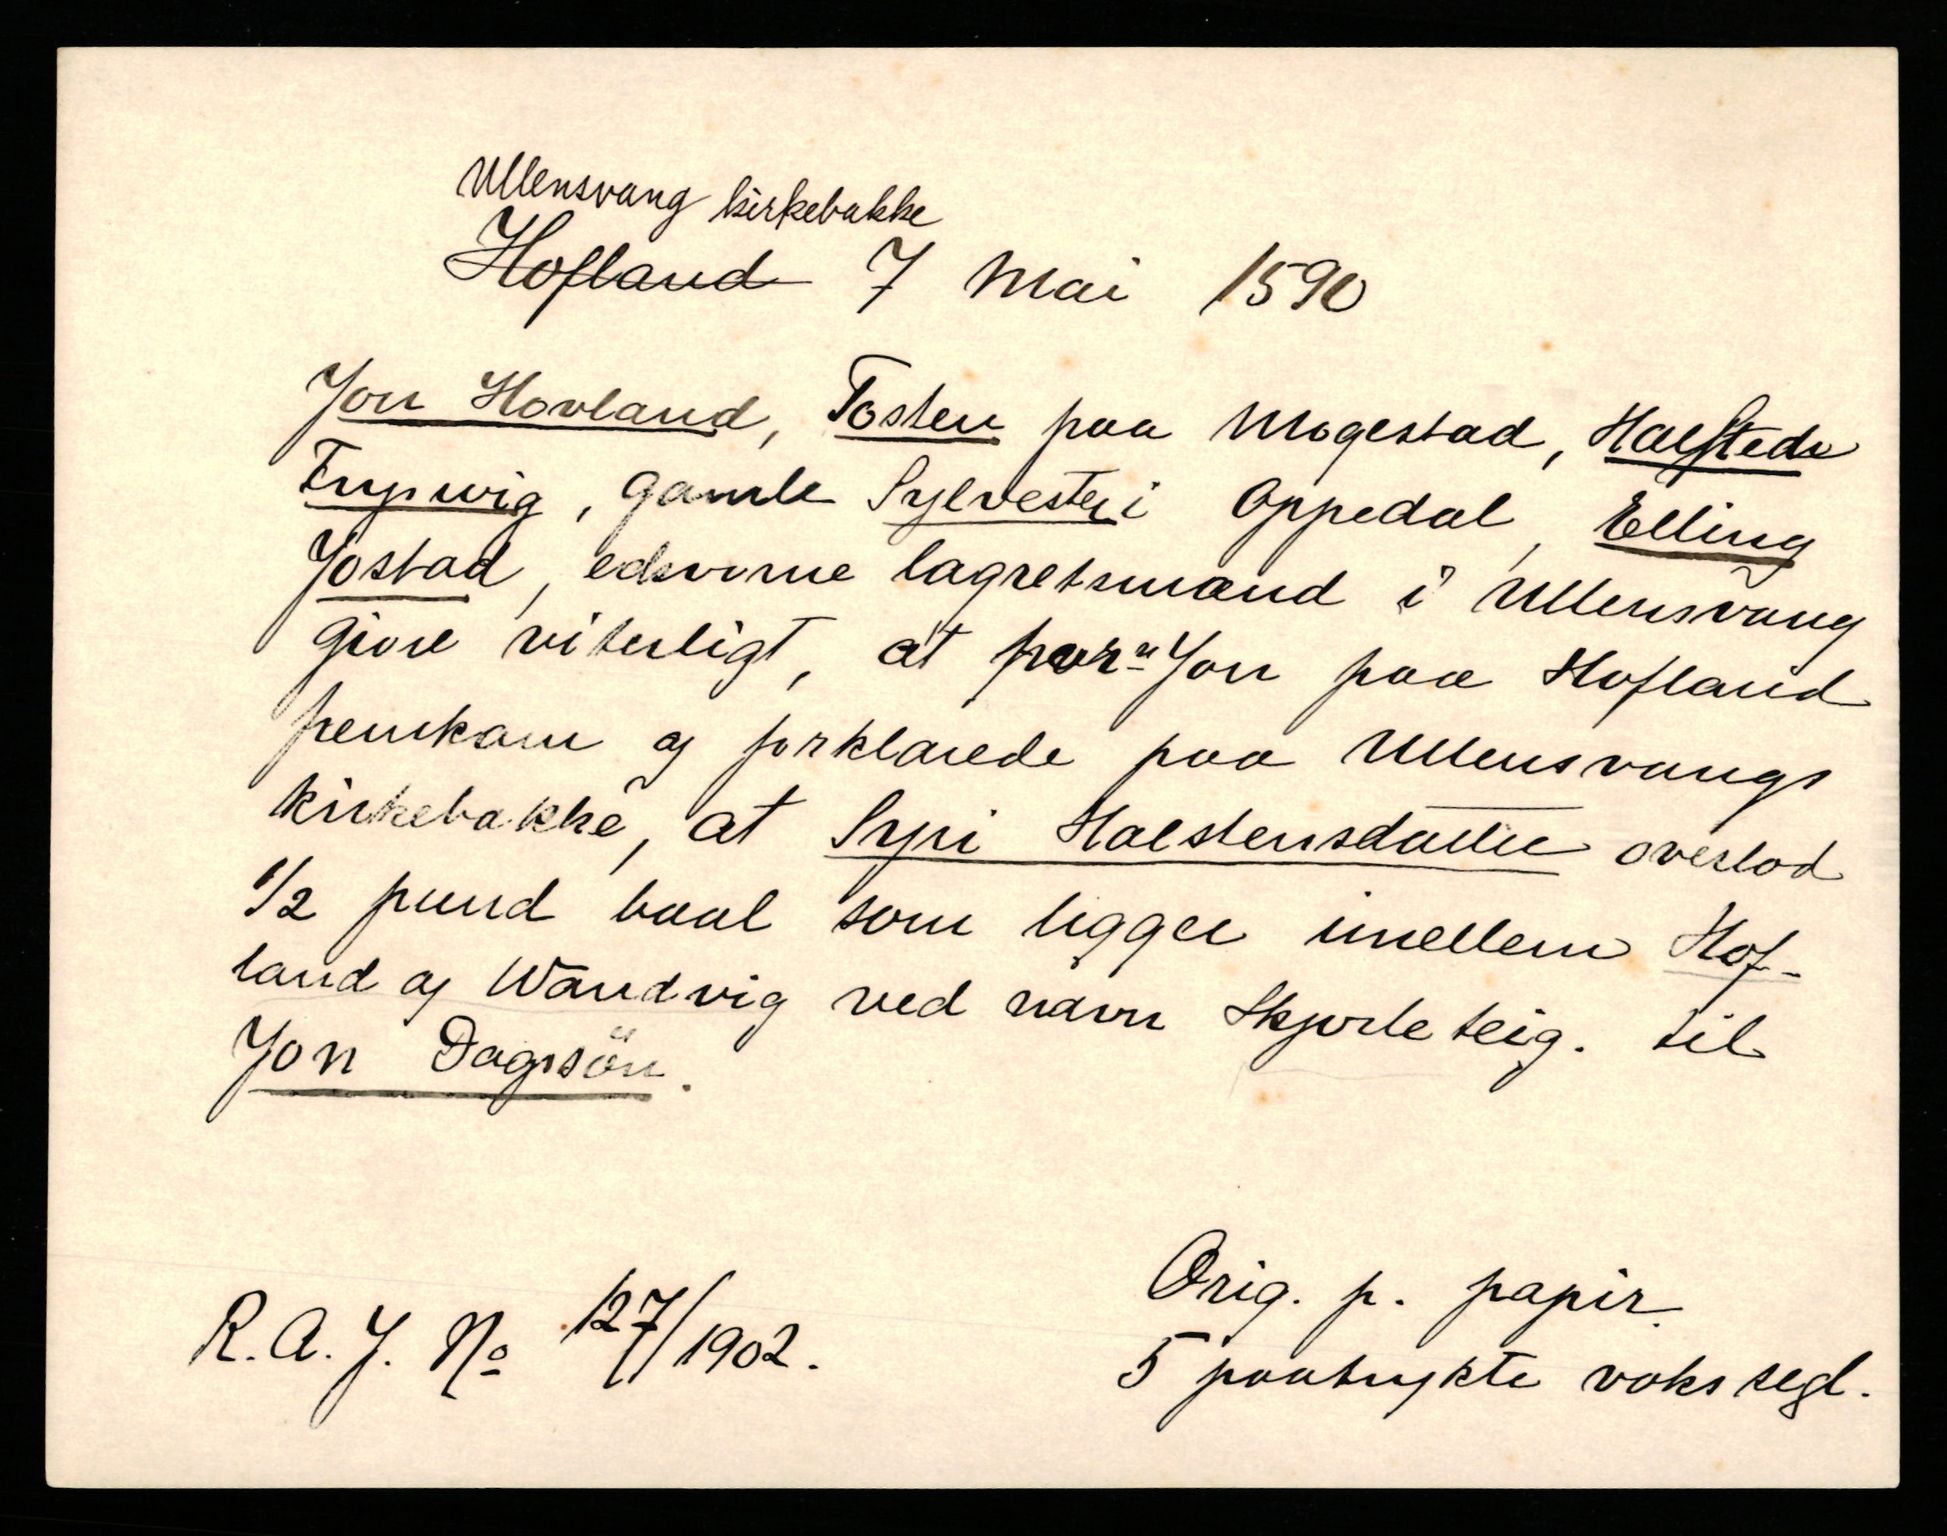 Ullensvang kirkebakke
Hofland 7 Mai 1590
Jon Hovland, Tosten paa Mogestad, Halsteds
Frywig, Gamle Sylvester i Oppedal, Elling
Jostad, edsvorne lagretsmænd i Ullensvang
giøre viterligt, at for" Jon paa Hofland
fremkom og forklarede paa Ullensvangs
kirkebakke, at Syri Halstensdatter overlod
1/2 pund baal som ligger imellem Hof-
land og Wandvig ved navn Skjerleteig. til
Jon Dagssön.
R. A. J. No 127/1902.
Orig. p. papir.
5 paatrykte voks segl.